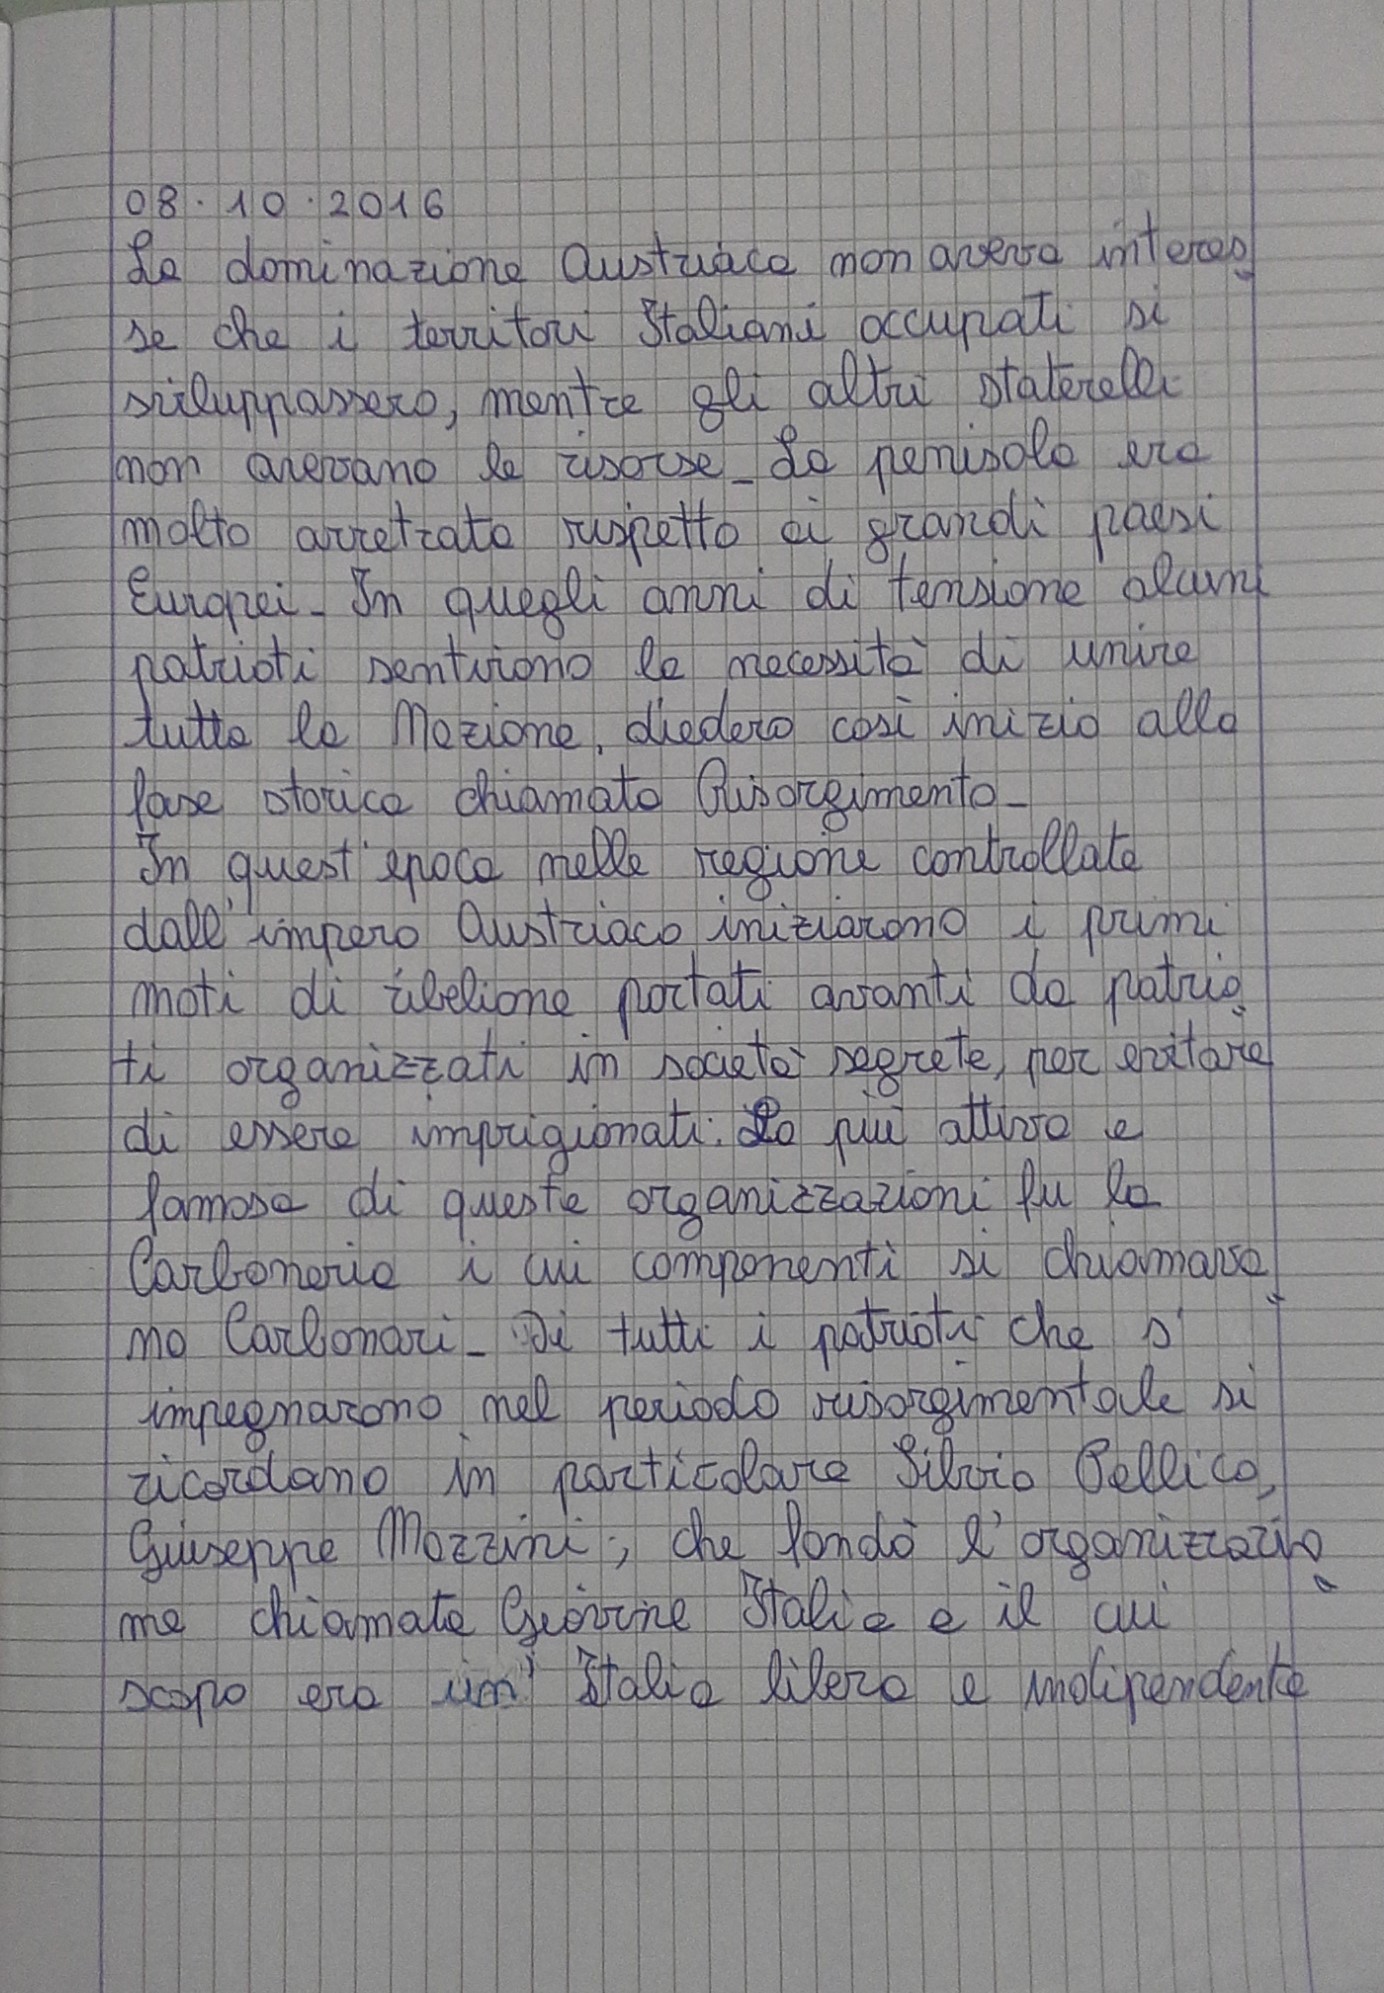 08.10.2016
La dominazione Austriaca non aveva interes
se che i territori Italiani occupati si
sviluppassero, mentre gli altri staterelli
non avevano le risorse_ La penisola era
molto arretrata rispetto ai grandi paesi
Europei_ In quegli anni di tensione alcuni
patrioti sentirono la necessità di unire
tutta la Nazione, diedero così inizio alla
fase storica chiamata Risorgimento_
In quest'epoca nelle regione controllate
dall'impero Austriaco iniziarono i primi
moti di ribelione portati avanti da patrio
ti organizzati in società segrete, per evitare
di essere imprigionati. La più attiva e
famosa di queste organizzazioni fu la
Carboneria i cui componenti si chiamava
no Carbonari_ Di tutti i patrioti che s'
impegnarono nel periodo risorgimentale si
ricordano in particolare Silvio Pellico,
Giuseppe Mazzini; che fondò l'organizzazio
ne chiamata Giovine Italia e il cui
scopo era un' Italia libera e indipendente